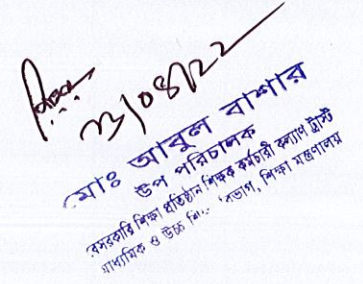 ২৩/০৪/২২
মোঃ আবুল বাশার
উপ পরিচালক
বেসরকারি শিক্ষা প্রতিষ্ঠান শিক্ষক কর্মচারী কল্যাণ ট্রাস্ট
মাধ্যমিক ও উচ্চ শি... বিভাগ, শিক্ষা মন্ত্রণালয়